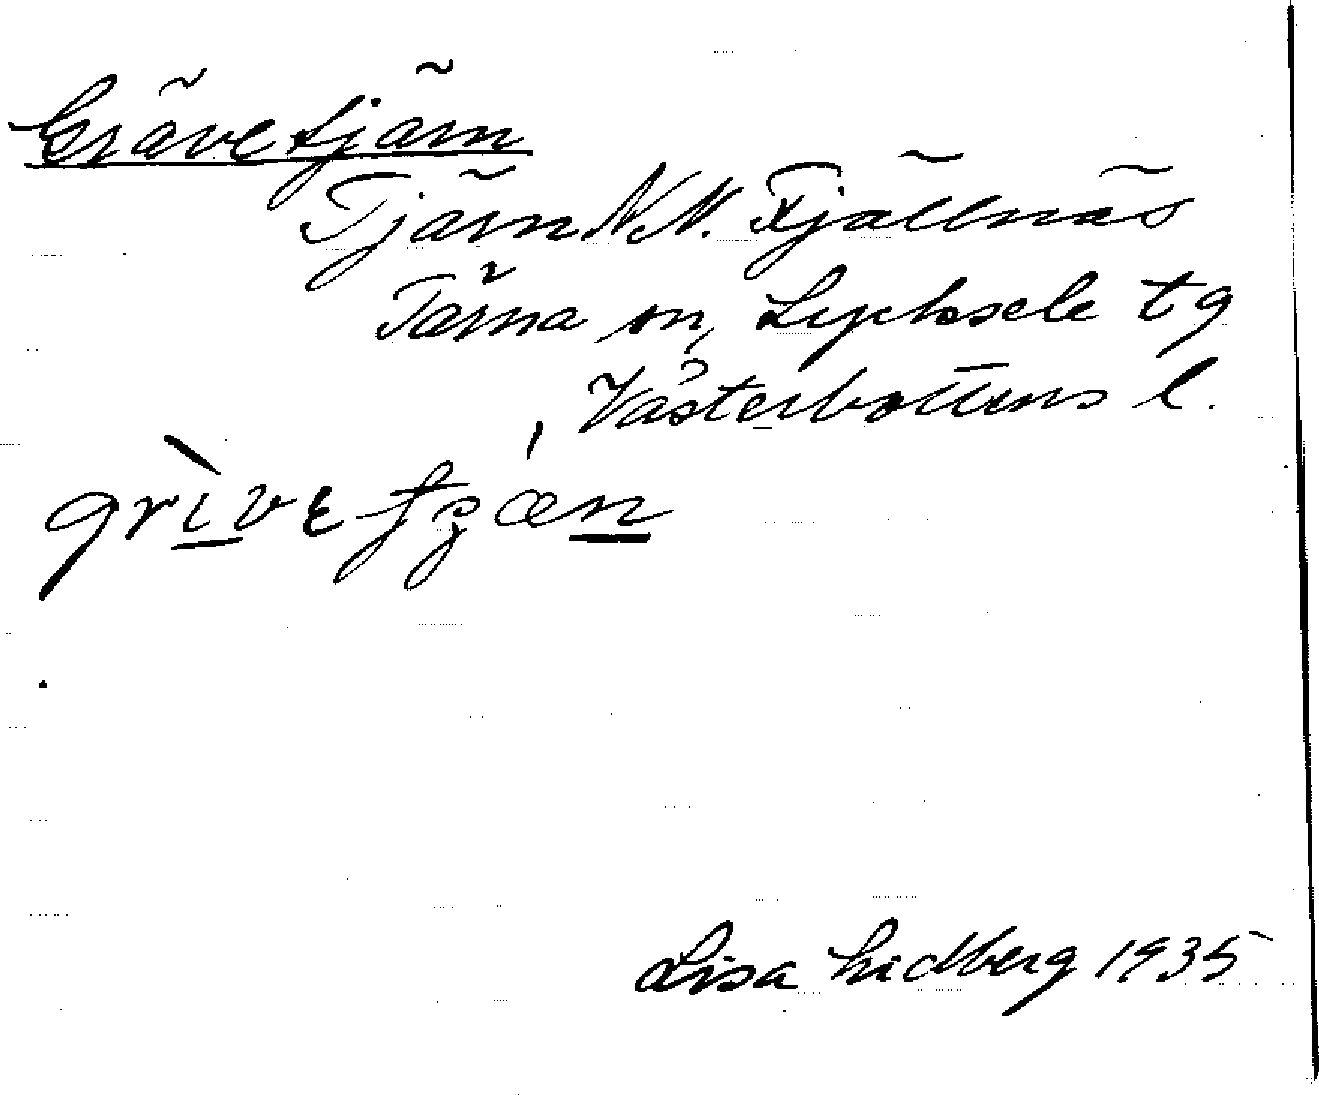 Grävetjärn
Tjärn N.N. Fjällnäs
Tärna sn, Lycksele tg
Västerbottens l.
grìvɛtȷ́æn
Lisa Lidberg 1935